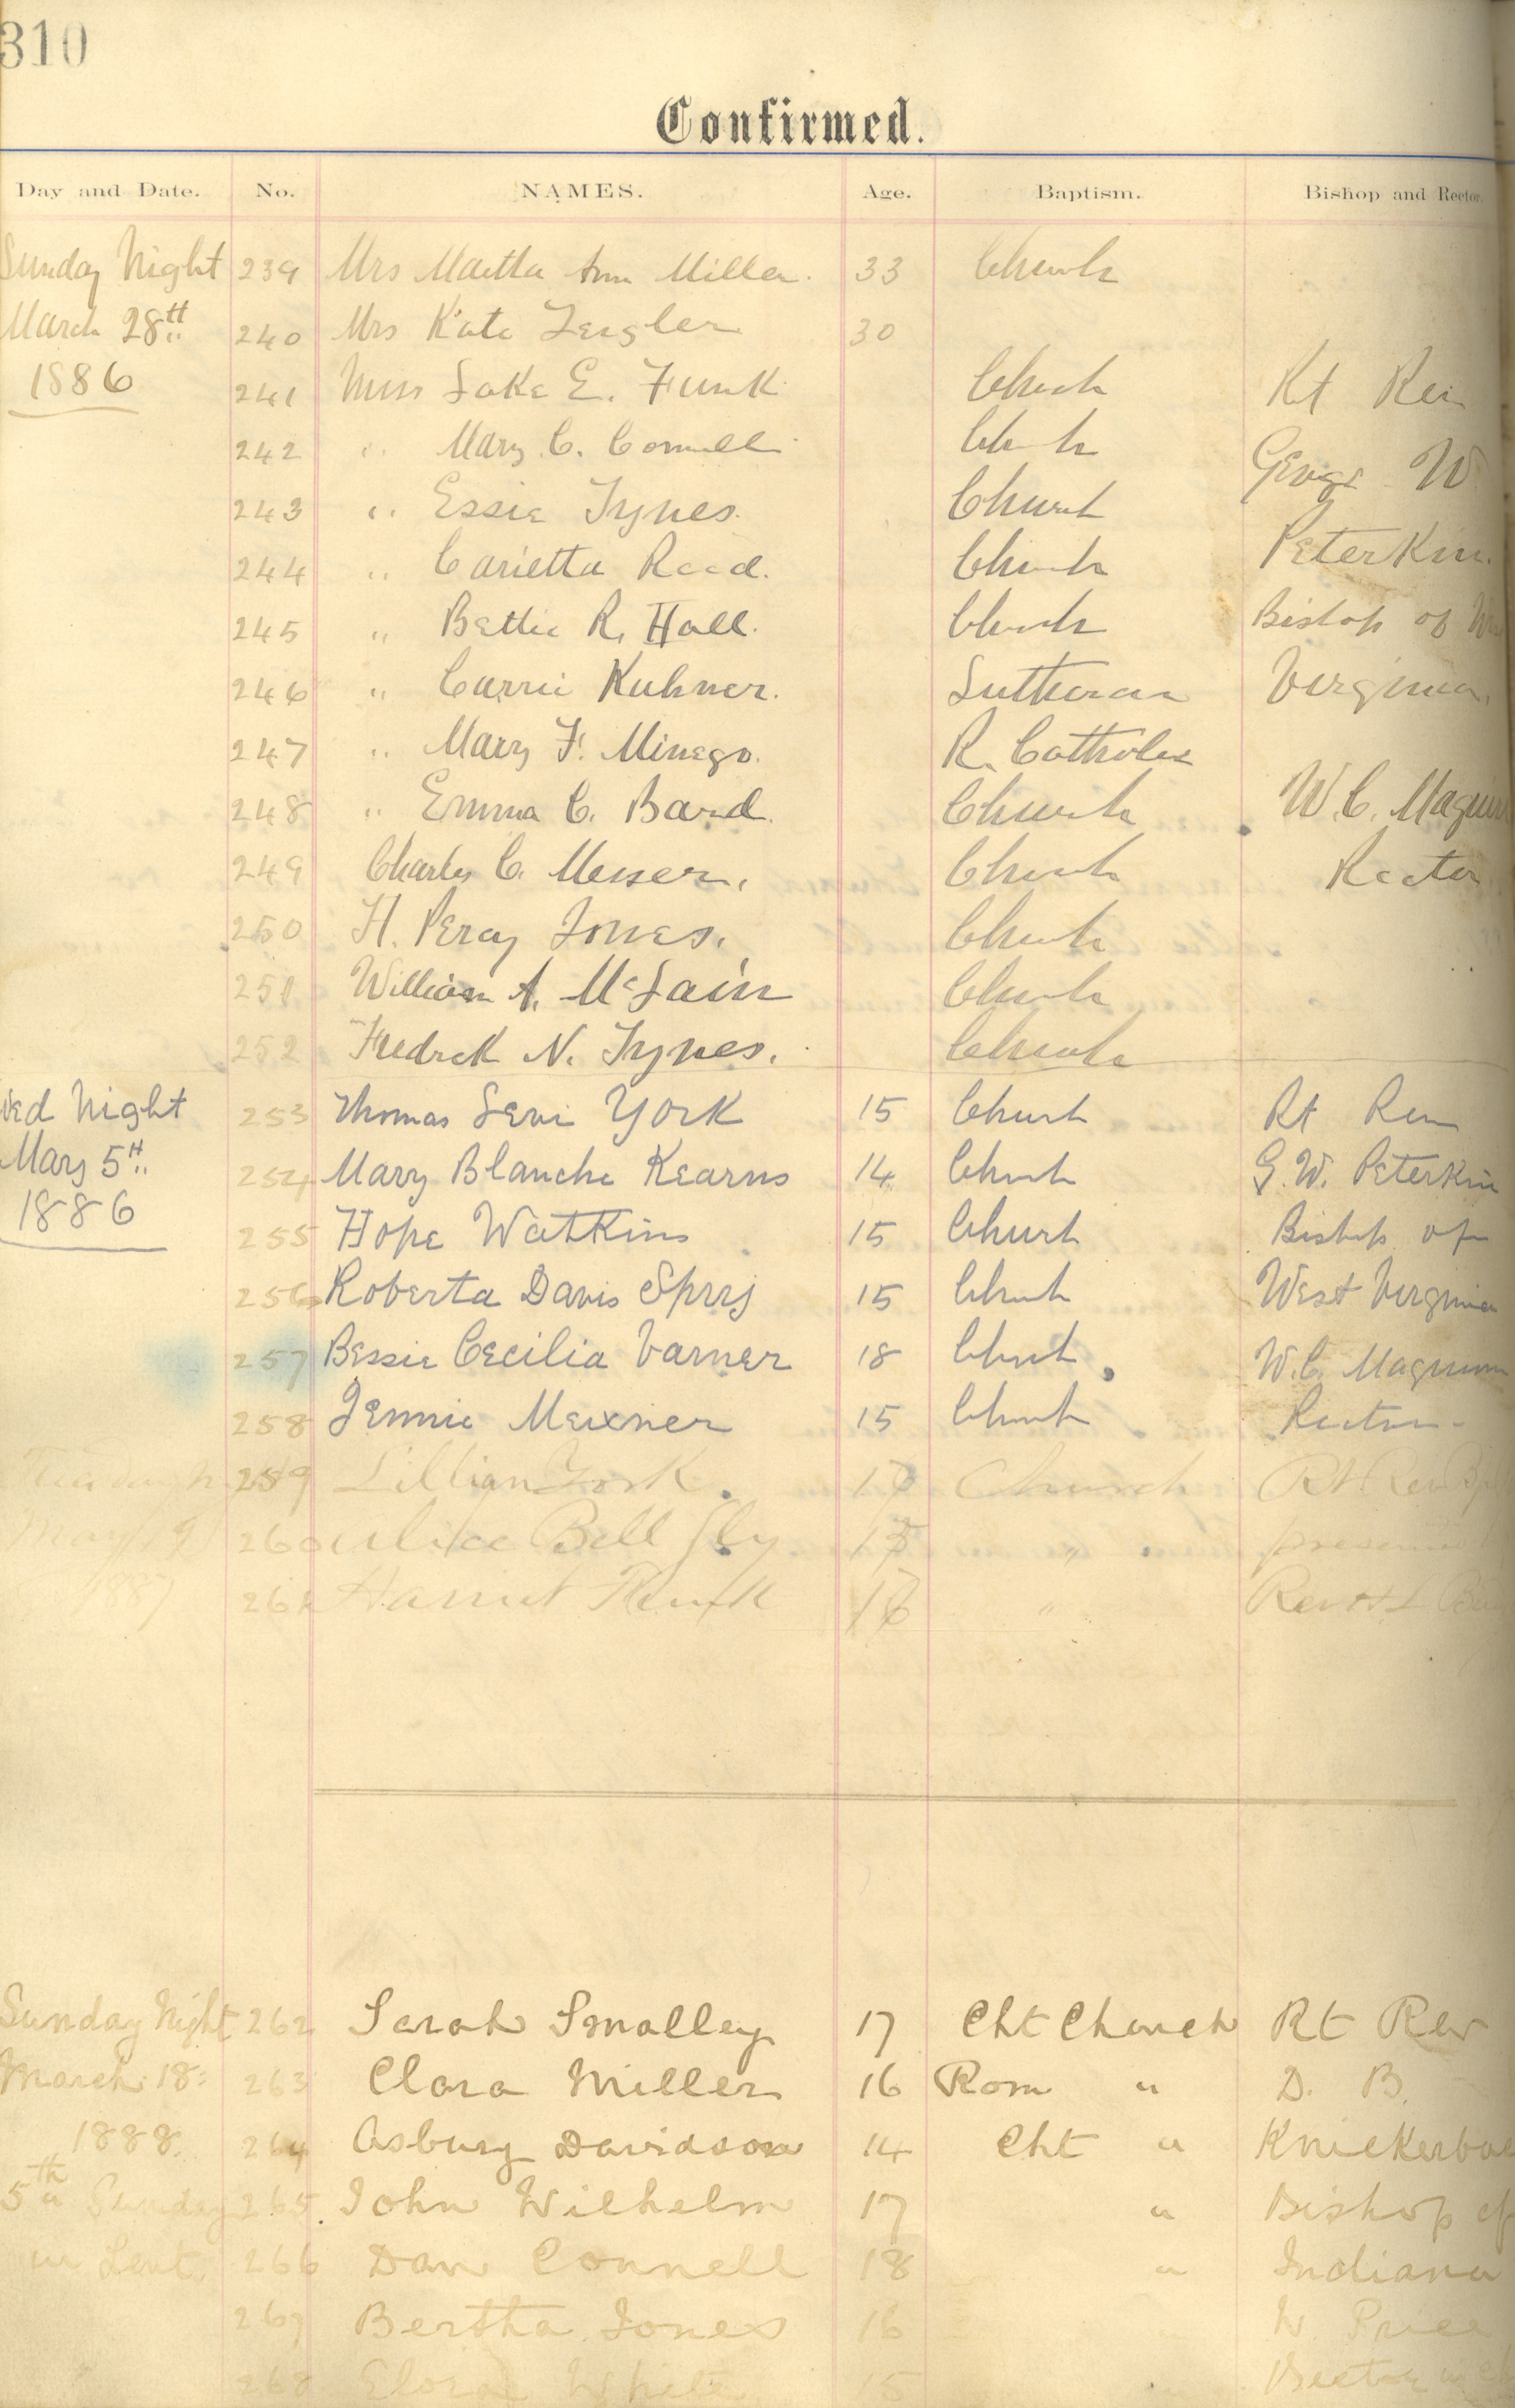 310
Confirmed.
Day and Date. No. NAMES. Age. Baptism. Bishop and Rector.
Sunday Night 239 Mrs Martha Ann Miller. 33 Church
March 28th 240 Mrs Kate Zeigler 30
1886 241 Miss Lake E. Funk Church Rt Rev
242 " Mary C. Connell Church George W
243 " Essie Tynes. Church
244 " Carietta Reed. Church Peterkin.
245 " Bettie R. Hall. Church Bishop of
246 " Carrie Kuhner. Lutheran Virginia,
247 " Mary F. Minego. R. Catholic
248 " Emma C. Bard. Church W. C. Maguire
249 Charles C. Messer. Church Rector
250 H. Percy Jones. Church
251 William A. McLain Church
252 Fredrek N. Tynes. Church
Wed Night 253 Thomas Levi York 15 Church Rt Rev
May 5th 254 Mary Blanche Kearns 14 Church G. W. Peterkin
1886 255 Hope Watkins 15 Church Bishop of
256 Roberta Davis 15 Church West Virginia
257 Bessie Cecilia Varner 18 Church W. C. Maguire
258 Jennie Meixner 15 Church Rector
259 Lillian York. Church Rt Rev
May 19 260 Alice Bell " presented
1887 261 Harriet "
Sunday Night 262 Sarah Smalley 17 Cht Church Rt Rev
March 18: 263 Clara Miller 16 Rom " D. B.
1888. 264 Asbury Davidson 14 Cht "
5th Sunday 265. John Wilhelm 17 " Bishop of
in Lent. 266 Dan Connell 18 " Indiana
267 Bertha Jones 16 W. Price
268 White 15